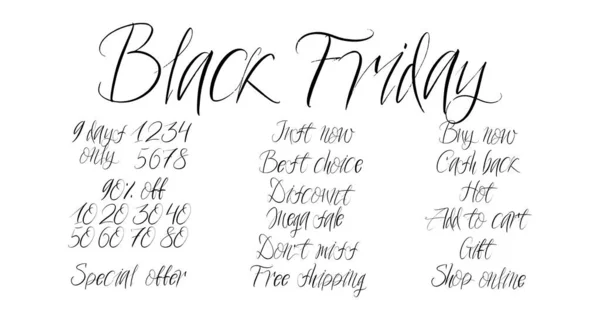 Black Friday
9 days 1234
only 5678
90% off
10 20 30 40
50 60 70 80
Special offer
Just now
Best choice
Discount
Mega sale
Don't miss
Free shipping
Buy now
Cash back
Hot
Add to cart
Gift
Shop online